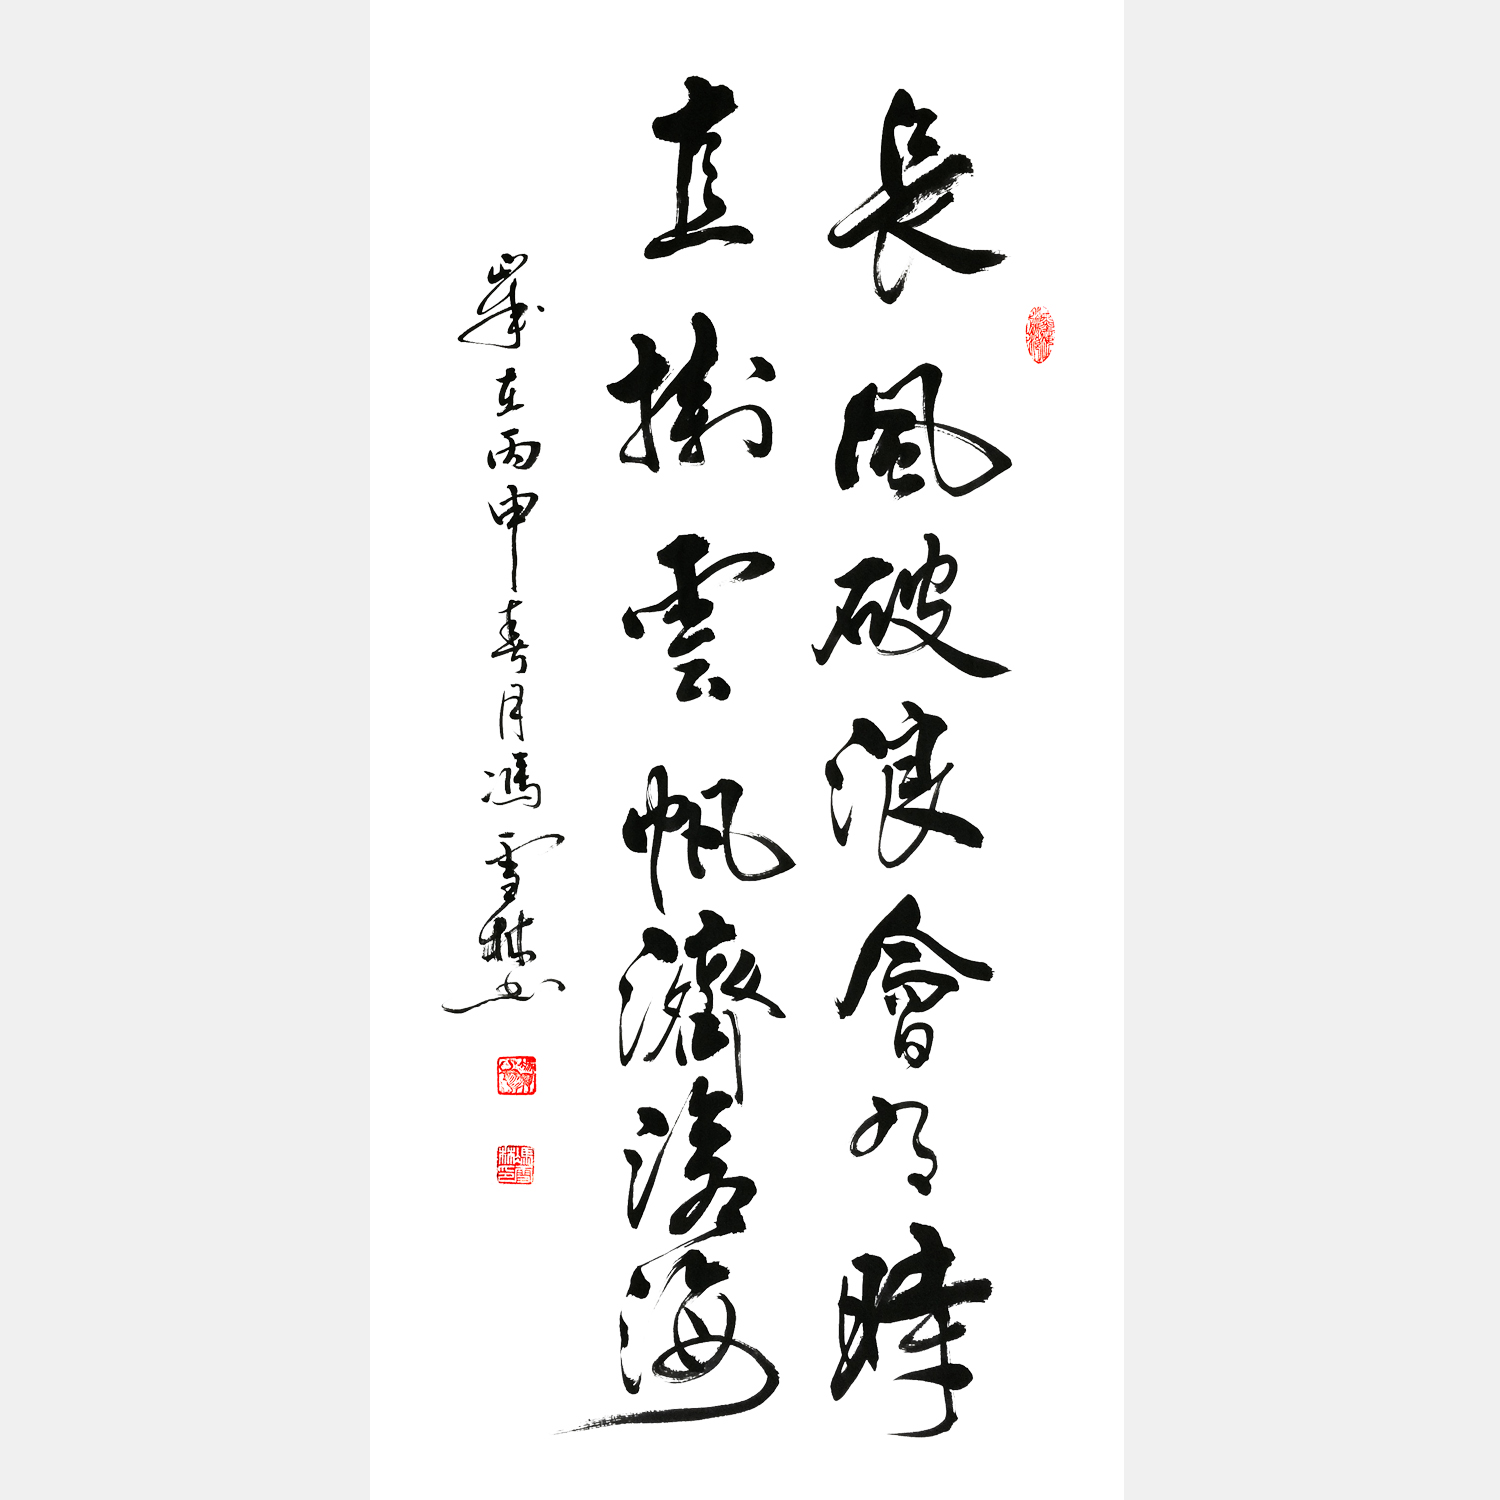 長風破浪會有時
直掛雲帆濟滄海
歲在丙申春月馮雪林書